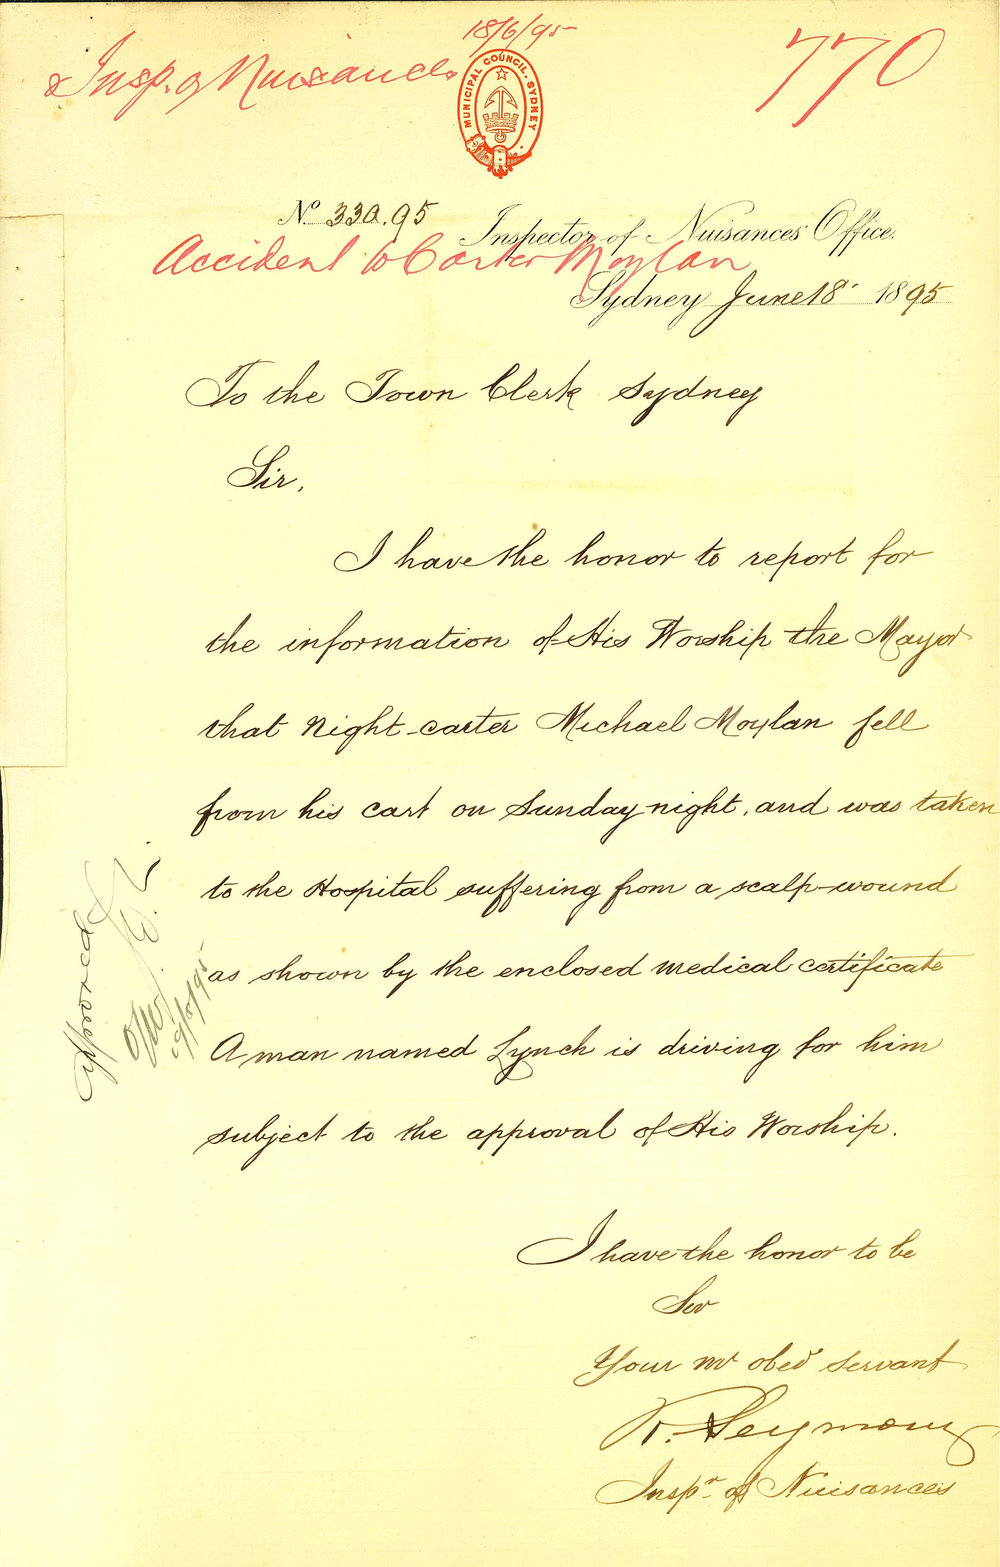 18/6/95
Insp. of Nuisances
770
MUNICIPAL COUNCIL. SYDNEY
No. 330.95 Inspector of Nuisances Office.
Accident to Carter Moylan
Sydney June 18 1895
To the Town Clerk Sydney
Sir,
I have the honor to report for
the information of His Worship the Mayor
that Night-carter Michael Moylan fell
from his cart on Sunday night, and was taken
to the Hospital suffering from a scalp-wound
as shown by the enclosed medical certificate
A man named Lynch is driving for him
subject to the approval of His Worship.
I have the honor to be
Sir
Your mt obedt servant
R. Seymour
Inspr of Nuisances
Approved